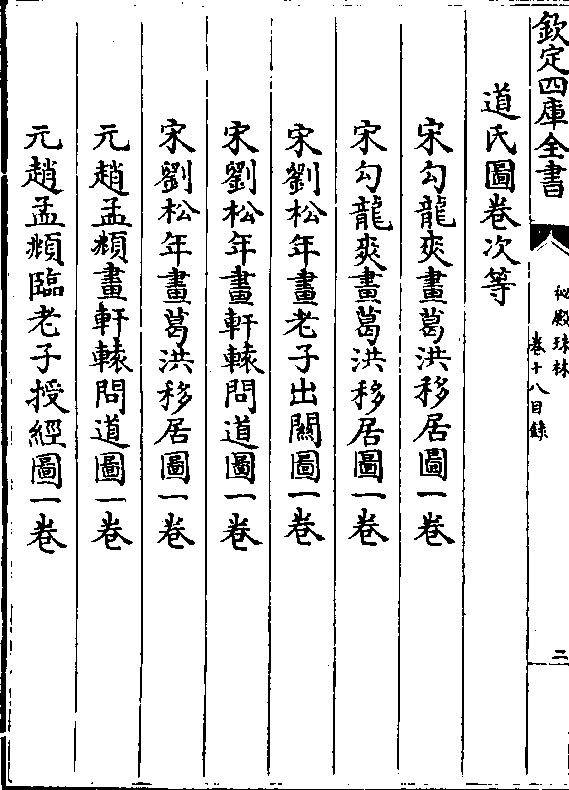 欽定四庫全書
秘殿珠林
卷十八目錄
二
道氏圖卷次等
宋勾龍爽畫葛洪移居圖一卷
宋勾龍爽畫葛洪移居圖一卷
宋劉松年畫老子出關圖一卷
宋劉松年畫軒轅問道圖一卷
宋劉松年畫葛洪移居圖一卷
元趙孟頫畫軒轅問道圖一卷
元趙孟頫臨老子授經圖一卷